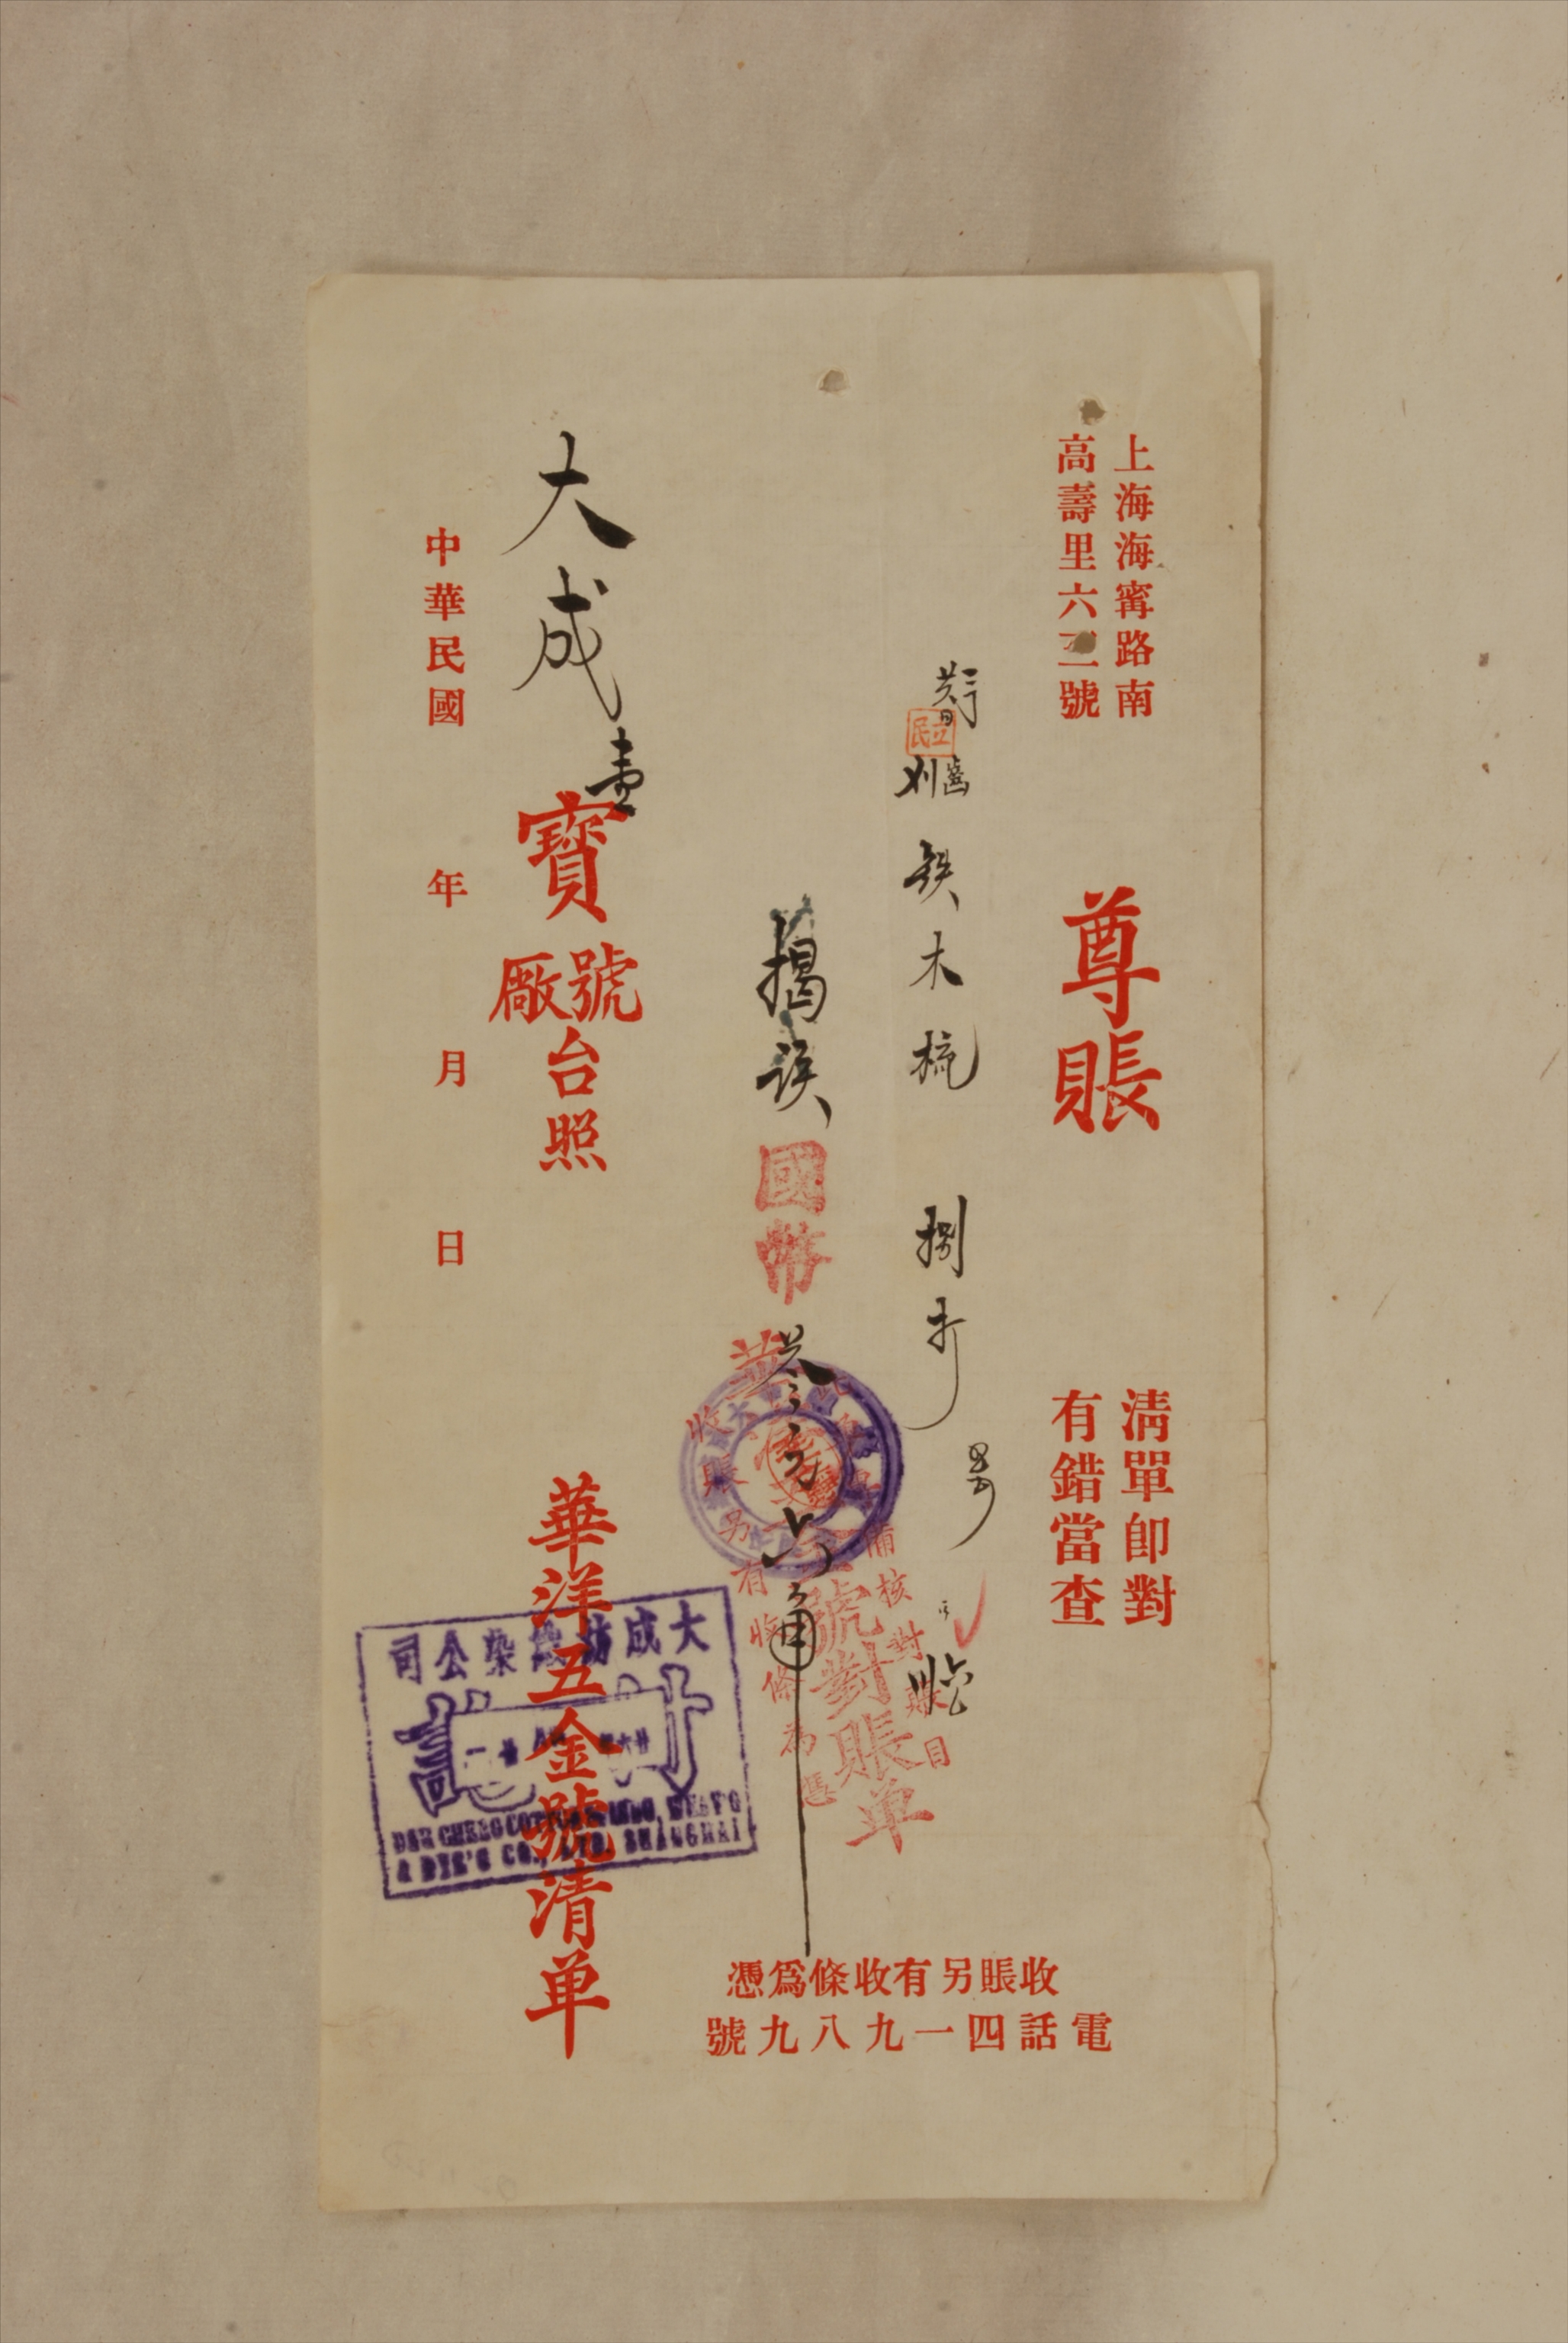 上海海甯路南
高壽里六三號
尊賬
清單卽對
有錯當查
立民
鉄木梳 捌打
揭該
國幣
叁元六角
號對賬单
核對賬目
收賬另有收條為憑
收賬另有收條爲憑
電話四一九八九號
大成壹
寶
號
廠
台照
華洋五金號清单
中華民國 年 月 日
大成紡織染公司
DAH CHENG COTTON
& DYE'G CO., LTD. SHANGHAI